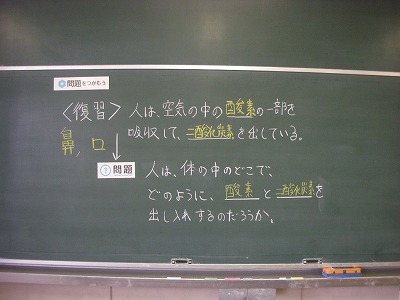 問題をつかもう
〈復習〉人は、空気の中の酸素の一部を
吸収して、二酸化炭素を出している。
鼻、口
? 問題
人は、体の中のどこで、
どのように、酸素と二酸化炭素を
出し入れするのだろうか。